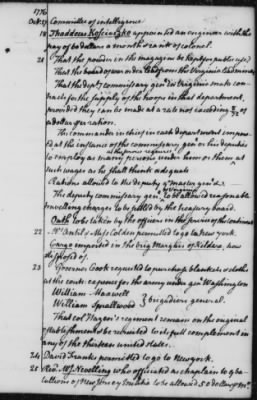 1776
Oct. 17 Committee of intelligence
18 Thaddeus Kosciuszko appointed an engineer with the
pay of 60 dollars a month & rank of colonel.
21 That the powder in the magazine be kept for public use
That the board of war order
That the depy commissary genl in Virginia make con-
tracts for the supply of the troops in that department,
provided they can be made at a rate not exceeding
a dollar per ration.
The commander in chief in each department impow-
ered at the instance of the commissary genl or his deputies
to employ as many persons under him or them at
such wages as he shall think adequate
Rations allowed to the deputy qr master genl &c
The deputy commissary genl in Virginia to be allowed reasonable
travelling charges to be settled by the treasury board.
Oath to be taken by the officers in the service of the continent
22 Mrs Colden permitted to go to New york.
Cargo imported in the brig Marquis of Kildare, how
disposed of.
23 Governor Cook requested to purchase blankets & cloths
at the conti expence for the army under genl Washington
William Maxwell
William Smallwood } brigadiers general.
That col Hazen's regiment remain on the original
establishment & be recruited to its full complement in
any of the thirteen united states.
24 David Franks permitted to go to New york.
25 Revd Mr J. Nevelling who officiated as chaplain to ye ba-
talions of New Jersey to be allowed 50 dollars